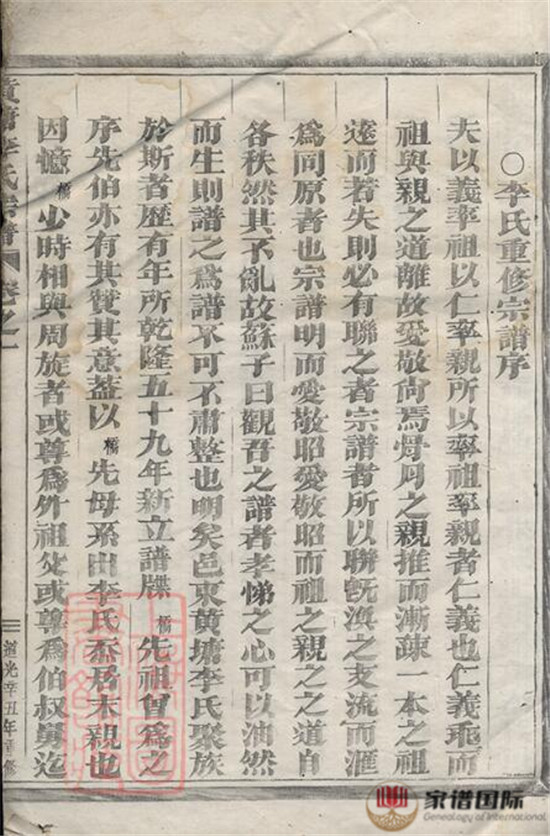 ○李氏重修宗譜序
夫以義率祖以仁率親所以率祖率親者仁義也仁義乖而
祖與親之道離故愛敬尙焉骨月之親推而漸疎一本之祖
遠而若失則必有聯之者宗譜者所以聯旣渙之支流而滙
爲同原者也宗譜明而愛敬昭愛敬昭而祖之親之之道自
各秩然其不亂故蘇子曰觀吾之譜者孝悌之心可以油然
而生則譜之爲譜不可不肅整也明矣邑東黃塘李氏聚族
於斯者歷有年所乾隆五十九年新立譜牒橋先祖曾爲之
序先伯亦有其贊其意蓋以橋先母系出李氏忝居末親也
因憶橋少時相與周旋者或尊爲外祖父或尊爲伯叔舅迄
黃塘李氏宗譜 卷之一
道光辛丑年重修
家谱国际
Genealogy of International